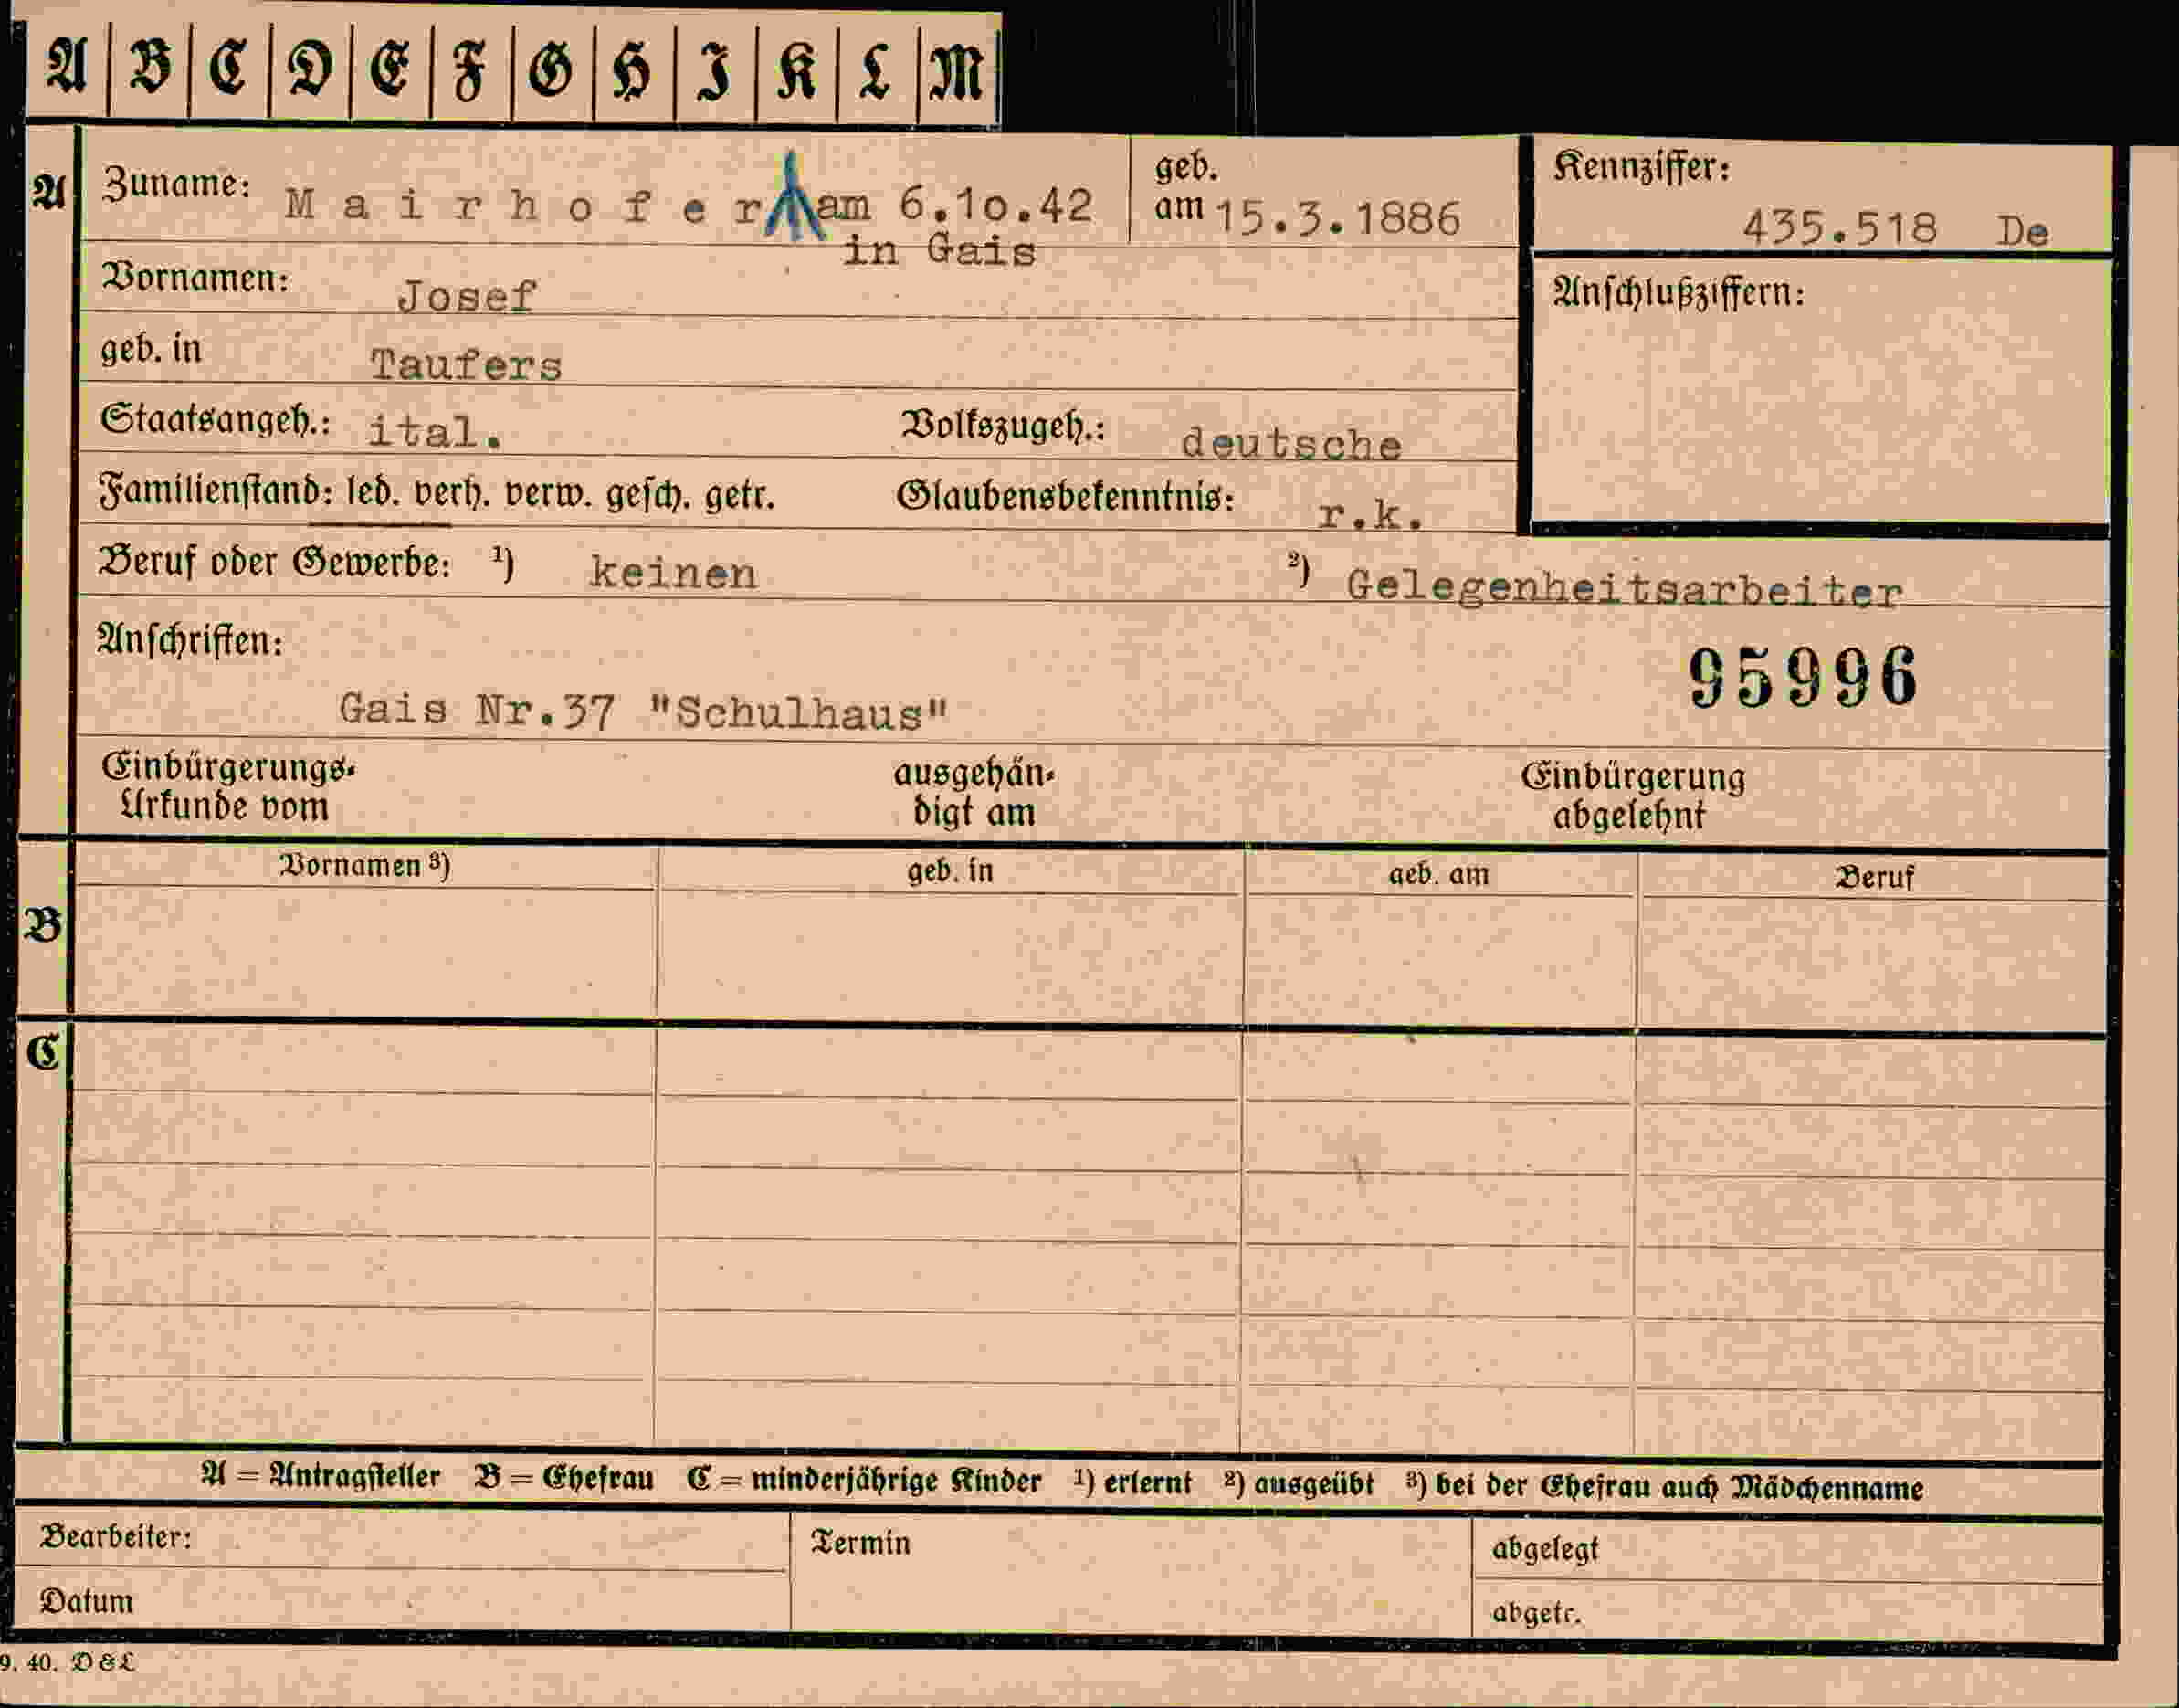 A B C D E F G H I K L M
A Zuname: Mairhofer am 6.10.42 geb. am 15.3.1886 Kennziffer: 435.518 De
in Gais
Vornamen: Josef Anschlußziffern:
geb. in Taufers
Staatsangeh.: ital. Volkszugeh.: deutsche
Familienstand: led. verh. verw. gesch. getr. Glaubensbekenntnis: r.k.
Beruf oder Gewerbe: ¹) keinen ²) Gelegenheitsarbeiter
Anschriften:
95996
Gais Nr.37 "Schulhaus"
Einbürgerungs- ausgehän- Einbürgerung
Urkunde vom digt am abgelehnt
Vornamen ³) geb. in geb. am Beruf
B
C
A = Antragsteller B = Ehefrau C = minderjährige Kinder ¹) erlernt ²) ausgeübt ³) bei der Ehefrau auch Mädchenname
Bearbeiter: Termin abgelegt
Datum abgetr.
9. 40. D & L